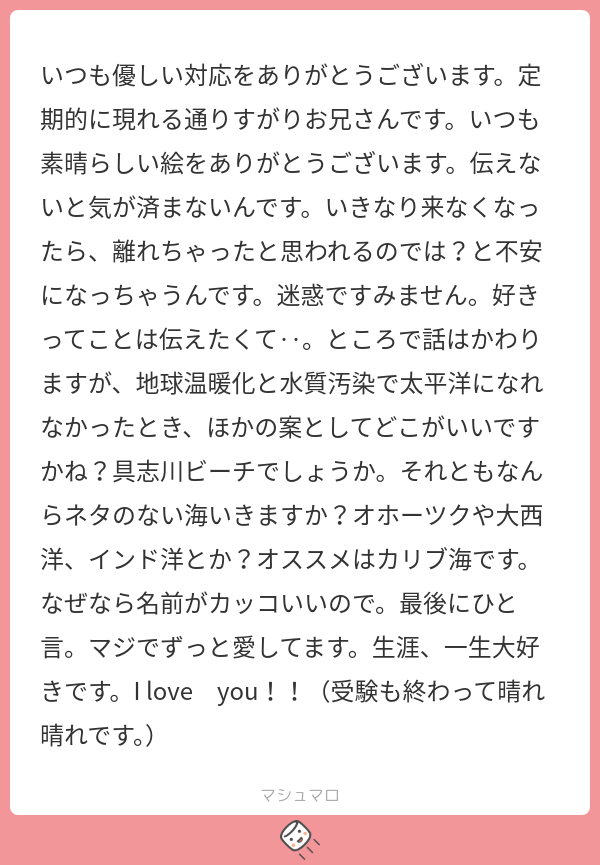 いつも優しい対応をありがとうございます。定
期的に現れる通りすがりお兄さんです。いつも
素晴らしい絵をありがとうございます。伝えな
いと気が済まないんです。いきなり来なくなっ
たら、離れちゃったと思われるのでは？と不安
になっちゃうんです。迷惑ですみません。好き
ってことは伝えたくて‥。ところで話はかわり
ますが、地球温暖化と水質汚染で太平洋になれ
なかったとき、ほかの案としてどこがいいです
かね？具志川ビーチでしょうか。それともなん
らネタのない海いきますか？オホーツクや大西
洋、インド洋とか？オススメはカリブ海です。
なぜなら名前がカッコいいので。最後にひと
言。マジでずっと愛してます。生涯、一生大好
きです。I love　you！！（受験も終わって晴れ
晴れです。）
マシュマロ